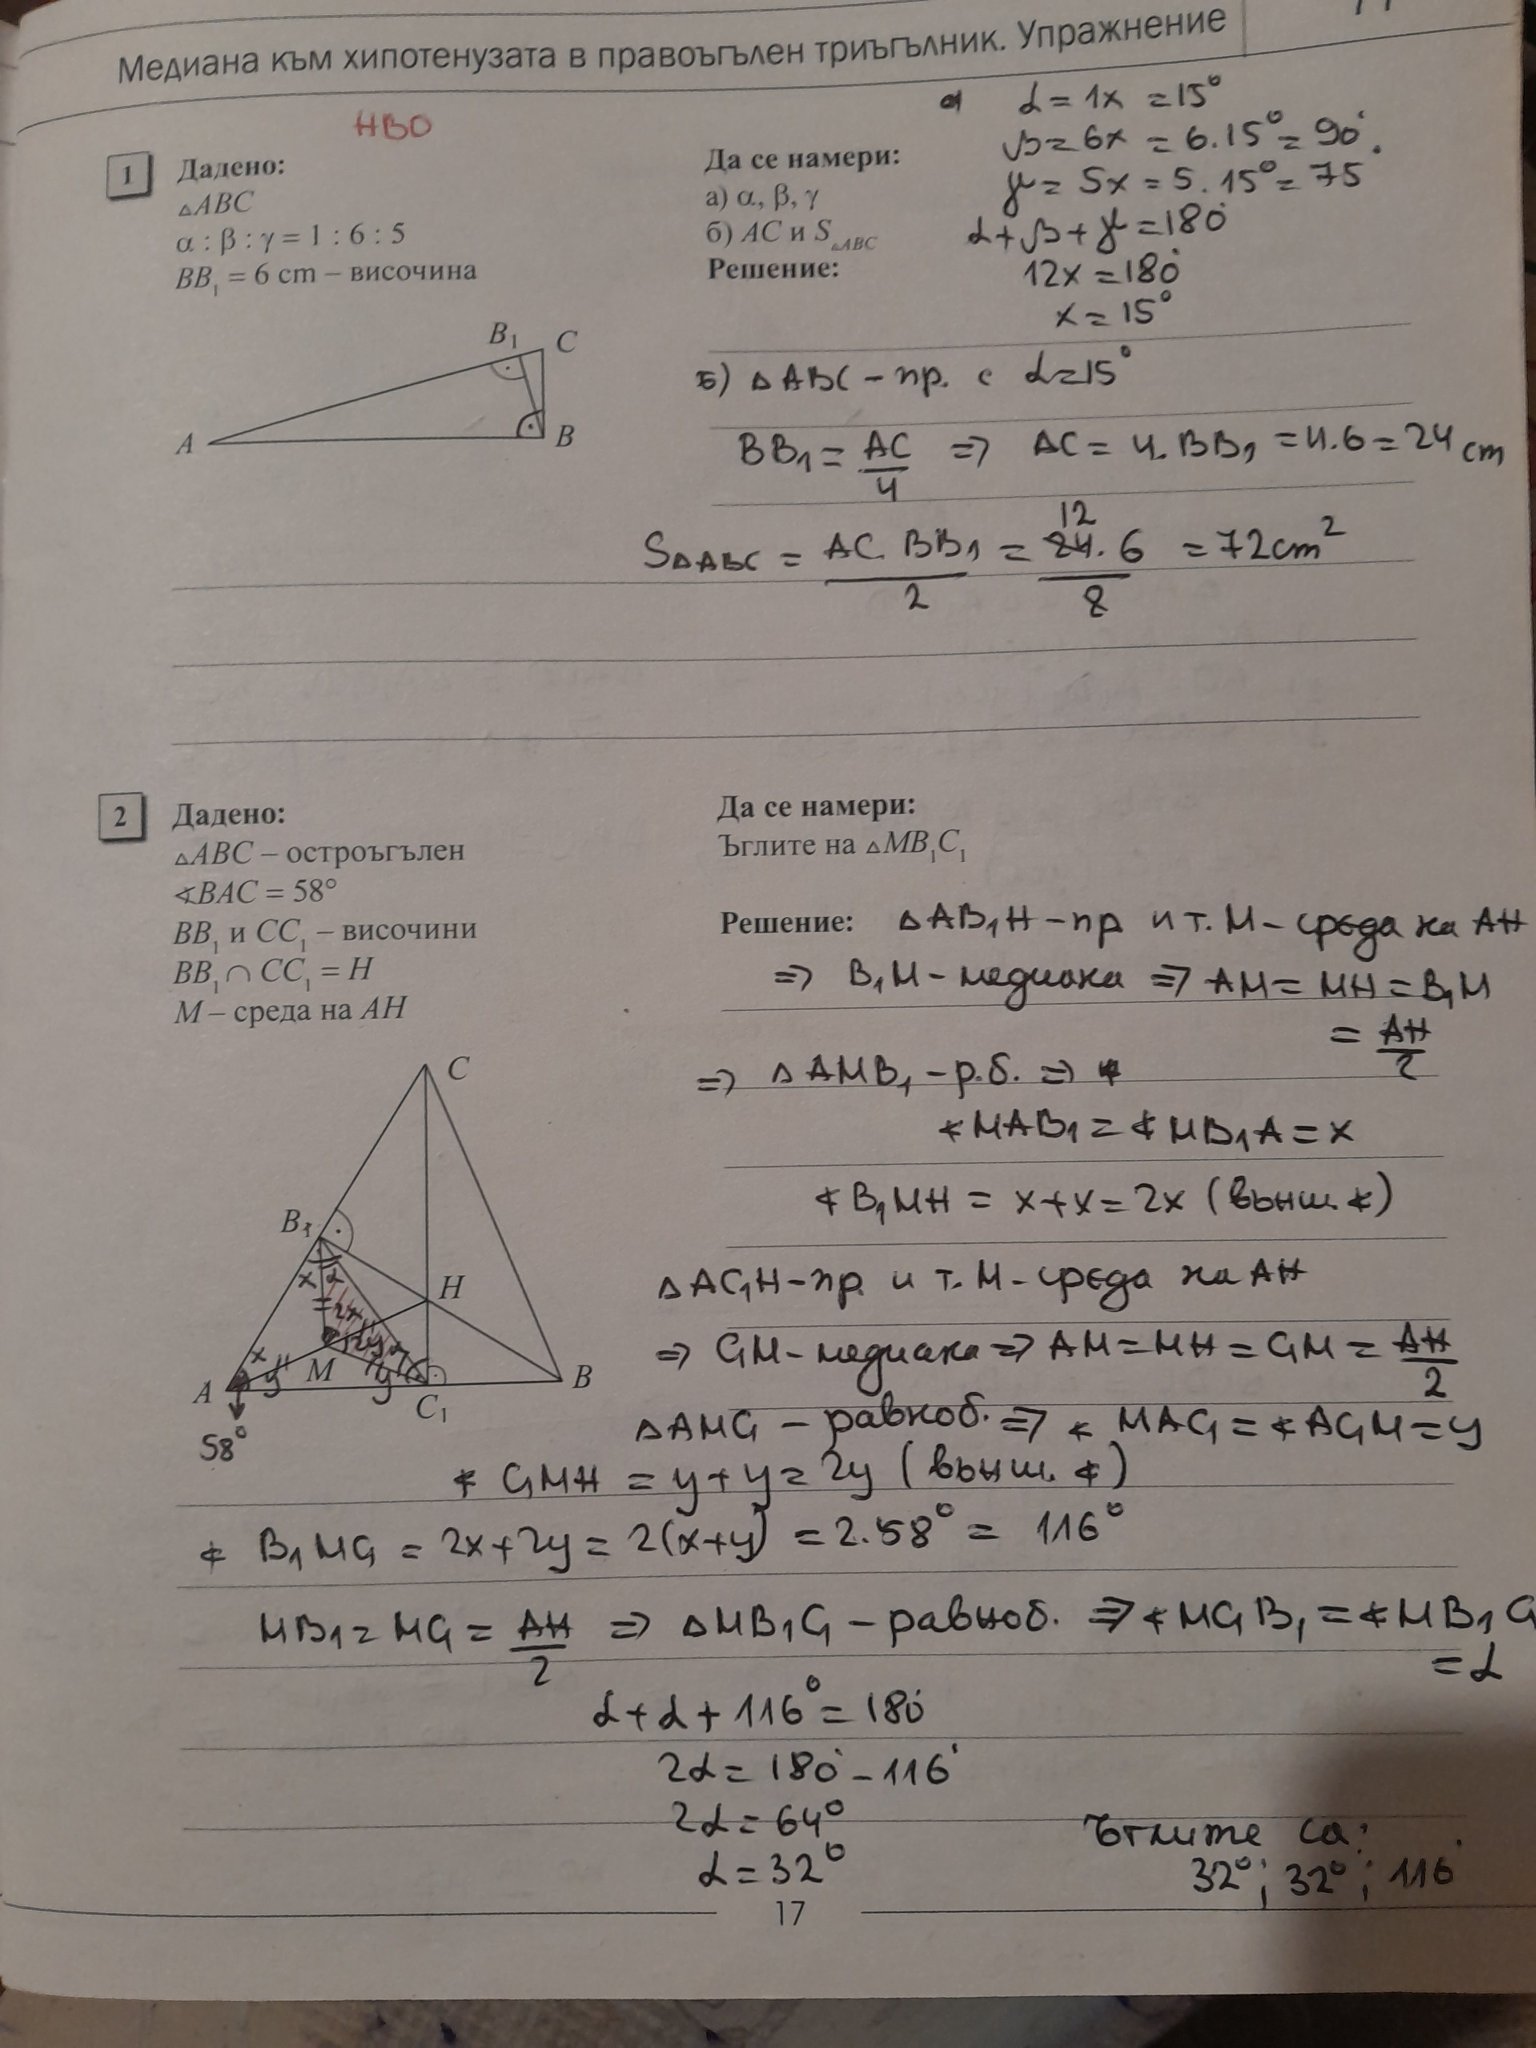 Медиана към хипотенузата в правоъгълен триъгълник. Упражнение
НВО
1 Дадено:
△ABC
α : β : γ = 1 : 6 : 5
BB₁ = 6 cm – височина
Да се намери:
а) α, β, γ
б) AC и S△ABC
Решение:
а) α = 1x = 15°
β = 6x = 6.15° = 90°.
γ = 5x = 5.15° = 75
α + β + γ = 180°
12x = 180°
x = 15°
B₁ C
A B
б) △ABC – пр. с α=15°
BB₁ = AC/4 ⇒ AC = 4.BB₁ = 4.6 = 24 cm
12
S△ABC = AC.BB₁/2 = 24.6/2 = 72cm²
2 Дадено:
△ABC – остроъгълен
∢BAC = 58°
BB₁ и CC₁ – височини
BB₁ ∩ CC₁ = H
M – среда на AH
Да се намери:
Ъглите на △MB₁C₁
Решение: △AB₁H – пр и т. M – среда на AH
⇒ B₁M – медиана ⇒ AM = MH = B₁M
= AH/2
⇒ △AMB₁ – р.б. ⇒ ∢
∢MAB₁ = ∢MB₁A = x
∢B₁MH = x+x = 2x (външ. ∢)
△AC₁H – пр. и т. M – среда на AH
⇒ C₁M – медиана ⇒ AM = MH = C₁M = AH/2
△AMC₁ – равноб. ⇒ ∢ MAC₁ = ∢AC₁M = y
∢ C₁MH = y+y = 2y (външ. ∢)
C
B₁
x α
H
2x 2y
x y M y
A C₁ B
58°
∢ B₁MC₁ = 2x+2y = 2(x+y) = 2.58° = 116°
MB₁ = MC₁ = AH/2 ⇒ △MB₁C₁ – равноб. ⇒ ∢MC₁B₁ = ∢MB₁C₁
= α
α + α + 116° = 180°
2α = 180° – 116°
2α = 64°
α = 32°
Ъглите са:
32°; 32°; 116°
17